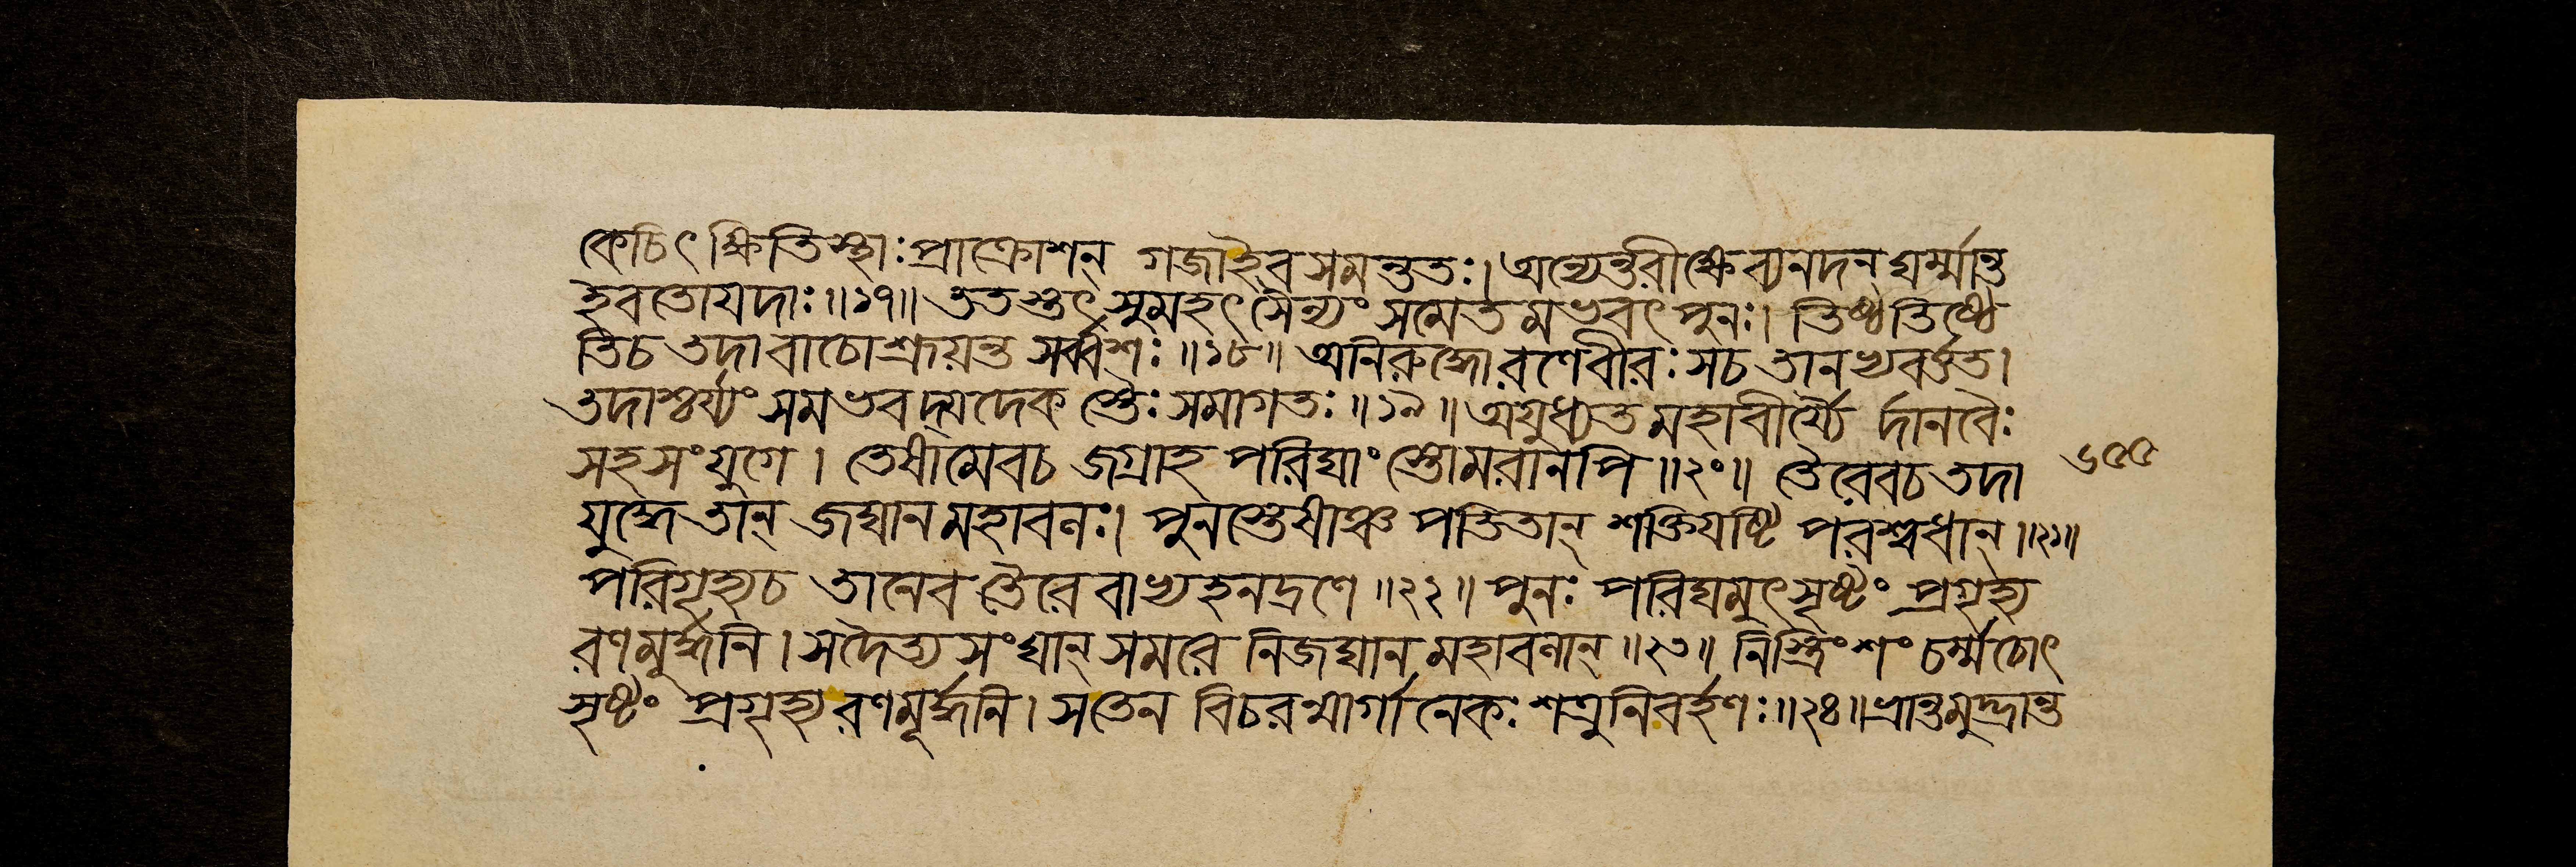 কেচিৎ ক্ষিতিস্থাঃ প্রাক্রোশন্ গজাইব সমন্ততঃ। অন্যেন্তরীক্ষে ব্যনদন্ ঘর্ম্মান্ত
ইব তোয়দাঃ॥১৭॥ ততস্তৎ সুমহৎ সৈন্যং সমেতমভবৎ পুনঃ। তিষ্ঠ তিষ্ঠে
তি চ তদা বাচোশ্রূয়ন্ত সর্ব্বশঃ॥১৮॥ অনিরুদ্ধো রণে বীরঃ স চ তানভ্যবর্ত্তত।
তদাশ্চর্য্যং সমভবদ্যদেকস্তৈঃ সমাগতঃ॥১৯॥ অযুধ্যত মহাবীর্য্যৈ র্দানবৈঃ
সহ সংযুগে। তেষামেব চ জগ্রাহ পরিঘাংস্তোমরানপি॥২০॥ তৈরেব চ তদা
যুদ্ধে তান্ জঘান মহাবলঃ। পুনস্তেষাঞ্চ পতিতান্ শক্তিযষ্টি পরশ্বধান্॥২১॥
পরিগৃহ্য চ তানেব তৈরেবাভ্যহনদ্রণে॥২২॥ পুনঃ পরিঘমুৎসৃষ্টং প্রগৃহ্য
রণমূর্দ্ধনি। স দৈত্যসংঘান্ সমরে নিজঘান মহাবলান্॥২৩॥ নিস্ত্রিংশং চর্ম্মচোৎ
সৃষ্টং প্রগৃহ্য রণমূর্দ্ধনি। স তেন বিচরন্মার্গানেকঃ শত্রুনিবর্হণঃ॥২৪॥ ভ্রান্তমুদ্ভ্রান্ত
৬৫৫